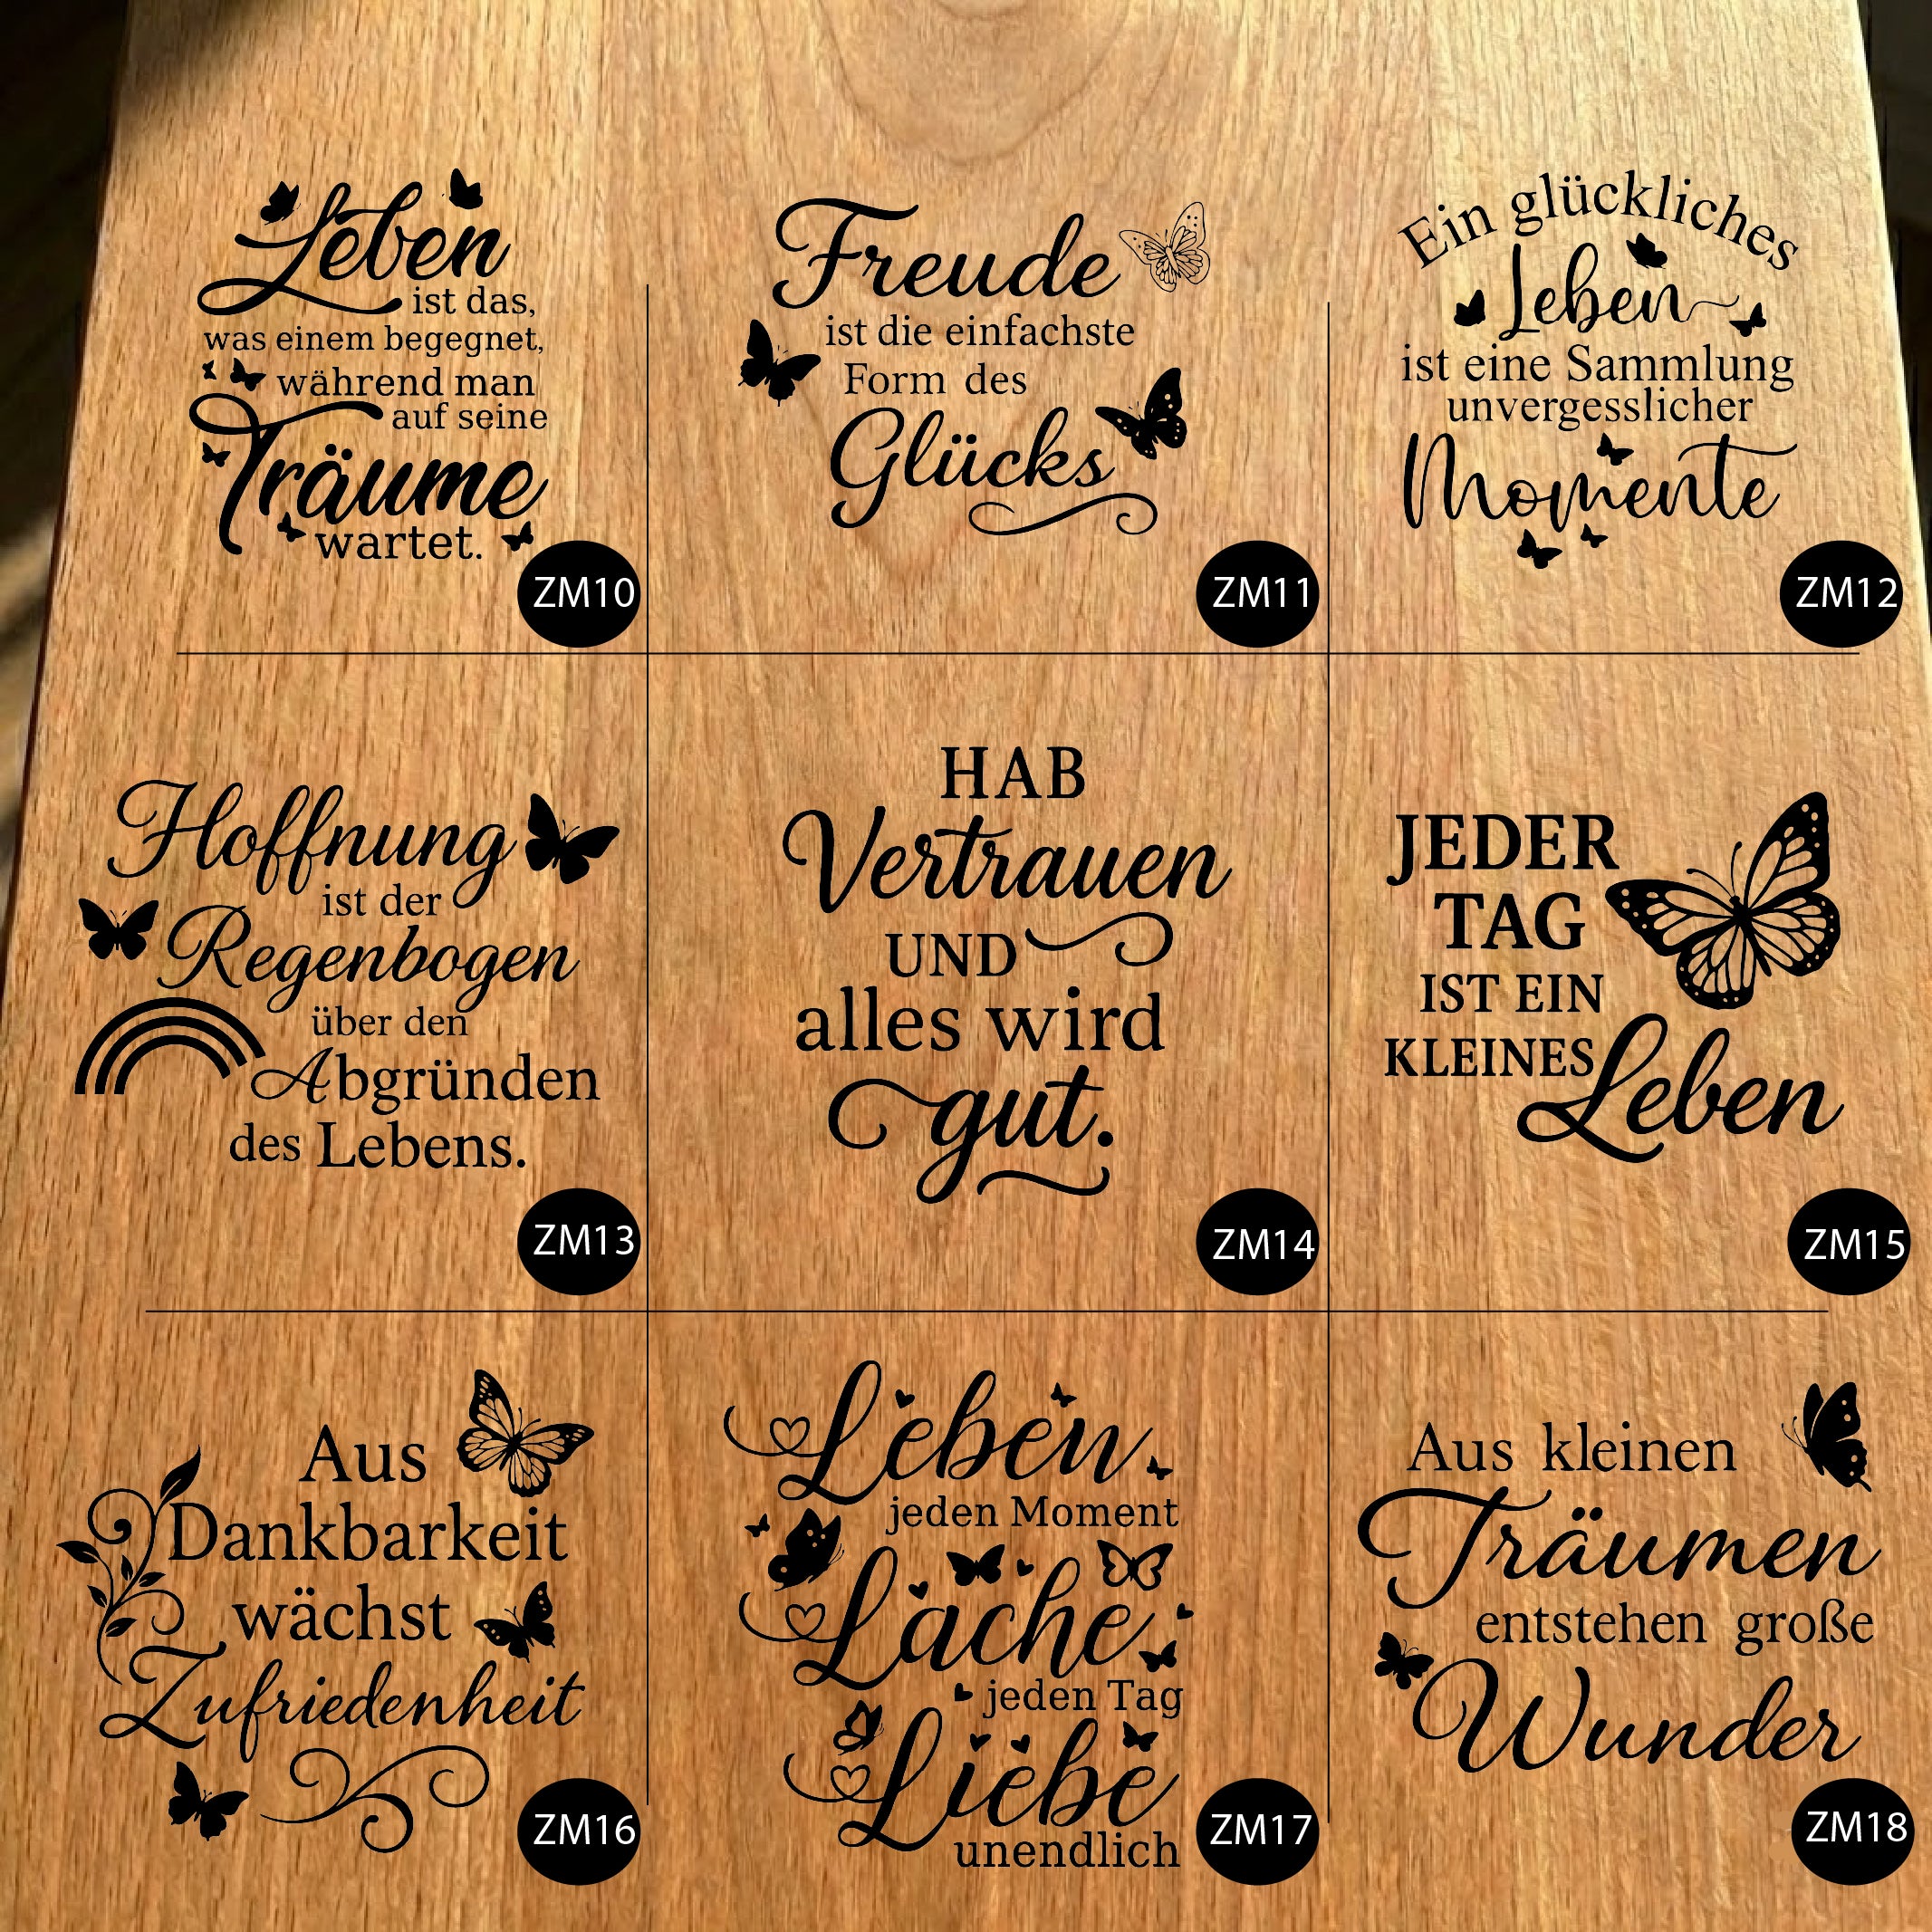 Leben
ist das,
was einem begegnet,
während man
auf seine
Träume
wartet.
ZM10
Freude
ist die einfachste
Form des
Glücks
ZM11
Ein glückliches
Leben
ist eine Sammlung
unvergesslicher
Momente
ZM12
Hoffnung
ist der
Regenbogen
über den
Abgründen
des Lebens.
ZM13
HAB
Vertrauen
UND
alles wird
gut.
ZM14
JEDER
TAG
IST EIN
KLEINES
Leben
ZM15
Aus
Dankbarkeit
wächst
Zufriedenheit
ZM16
Leben
jeden Moment
Lache
jeden Tag
Liebe
unendlich
ZM17
Aus kleinen
Träumen
entstehen große
Wunder
ZM18